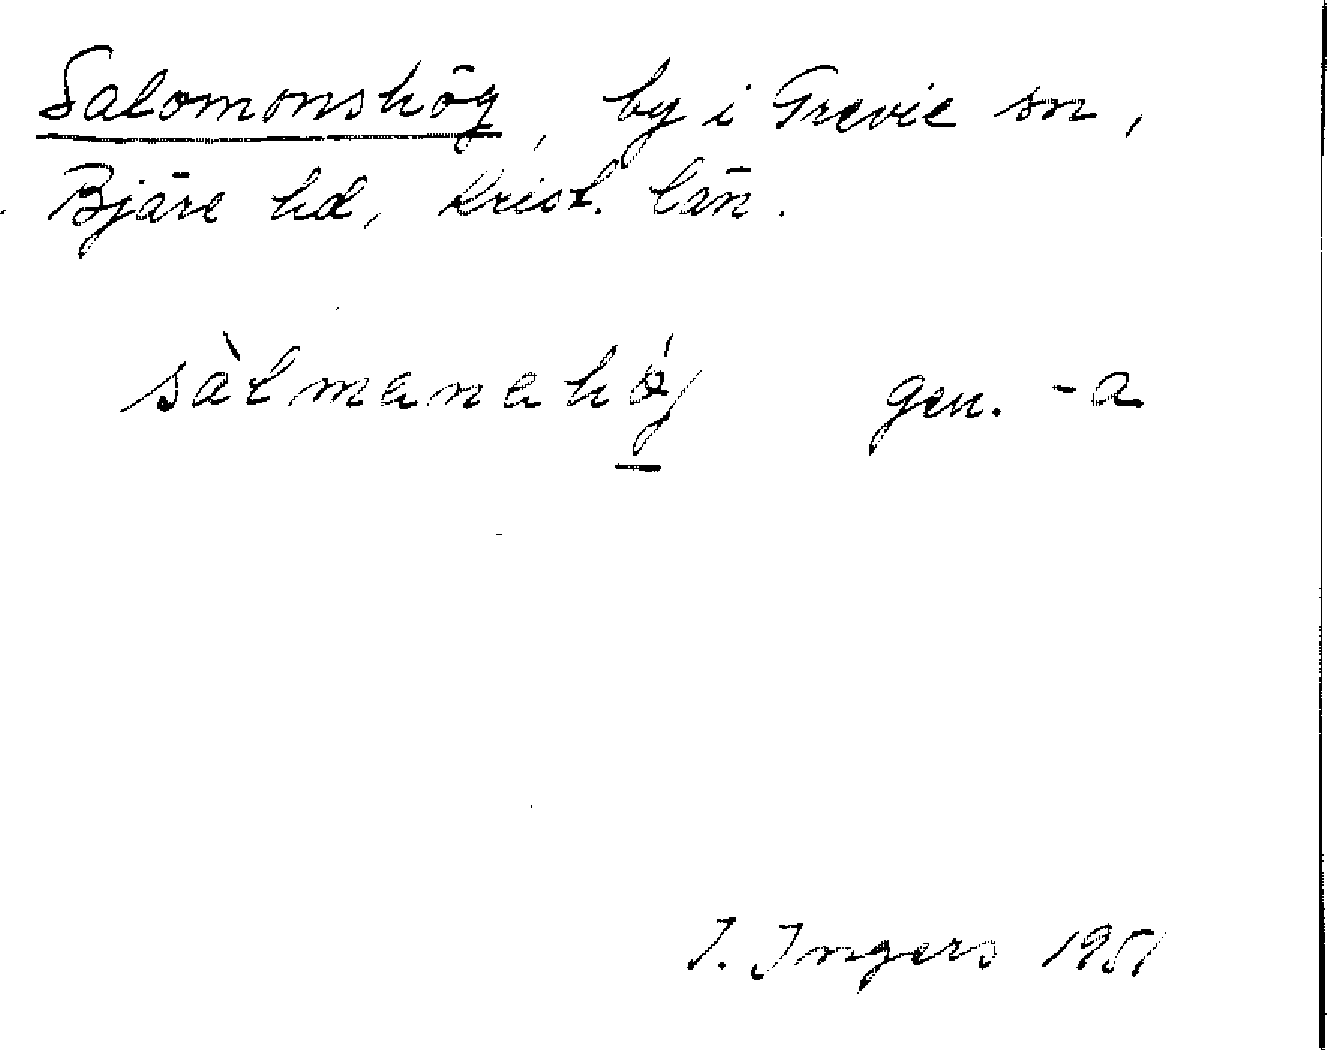 Salomonshög, by i Grevie sn,
Bjäre hd, Krist. län.
sàlmanahǿg gen. -a
I. Ingers 1951